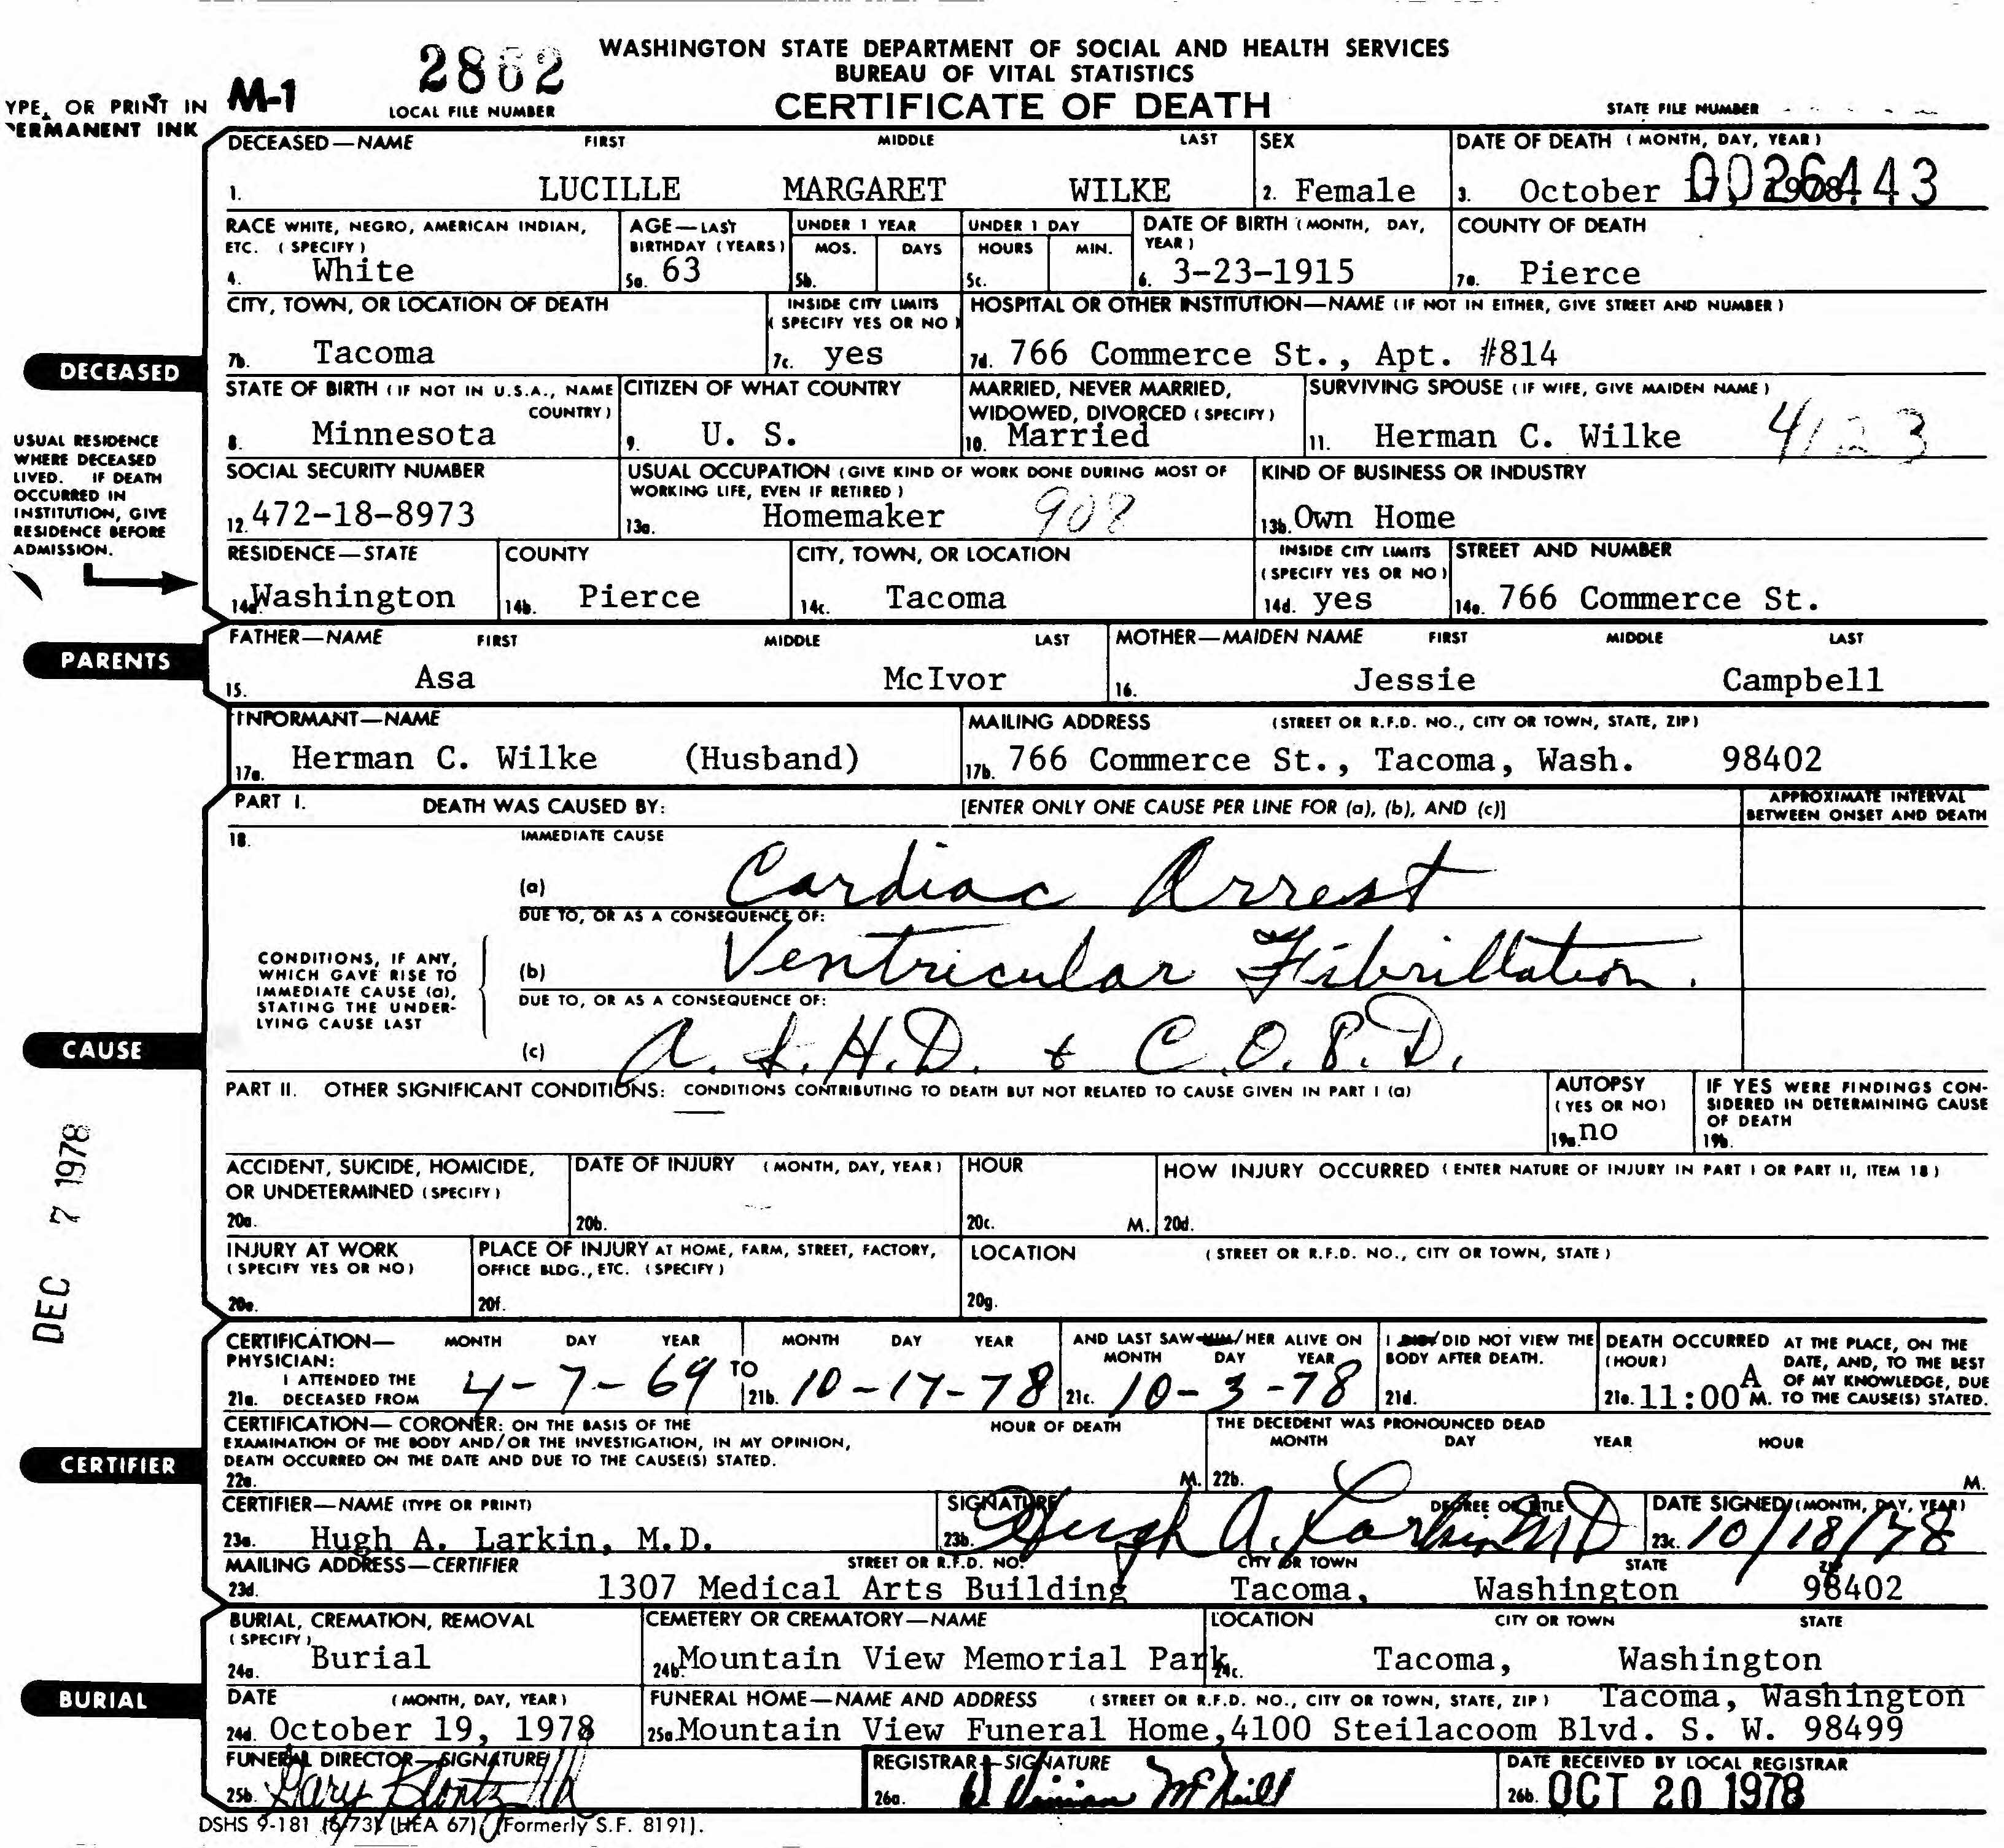 WASHINGTON STATE DEPARTMENT OF SOCIAL AND HEALTH SERVICES
BUREAU OF VITAL STATISTICS
CERTIFICATE OF DEATH
YPE, OR PRINT IN
PERMANENT INK
M-1
2862
LOCAL FILE NUMBER
STATE FILE NUMBER
0026443
DECEASED—NAME FIRST MIDDLE LAST
1. LUCILLE MARGARET WILKE
SEX
2. Female
DATE OF DEATH (MONTH, DAY, YEAR)
3. October 1978
RACE WHITE, NEGRO, AMERICAN INDIAN, ETC. (SPECIFY)
4. White
AGE—LAST BIRTHDAY (YEARS)
5a. 63
UNDER 1 YEAR
MOS. DAYS
5b.
UNDER 1 DAY
HOURS MIN.
5c.
DATE OF BIRTH (MONTH, DAY, YEAR)
6. 3-23-1915
COUNTY OF DEATH
7a. Pierce
CITY, TOWN, OR LOCATION OF DEATH
7b. Tacoma
INSIDE CITY LIMITS (SPECIFY YES OR NO)
7c. yes
HOSPITAL OR OTHER INSTITUTION—NAME (IF NOT IN EITHER, GIVE STREET AND NUMBER)
7d. 766 Commerce St., Apt. #814
DECEASED
STATE OF BIRTH (IF NOT IN U.S.A., NAME COUNTRY)
8. Minnesota
CITIZEN OF WHAT COUNTRY
9. U. S.
MARRIED, NEVER MARRIED, WIDOWED, DIVORCED (SPECIFY)
10. Married
SURVIVING SPOUSE (IF WIFE, GIVE MAIDEN NAME)
11. Herman C. Wilke 4123
USUAL RESIDENCE
WHERE DECEASED
LIVED. IF DEATH
OCCURRED IN
INSTITUTION, GIVE
RESIDENCE BEFORE
ADMISSION.
SOCIAL SECURITY NUMBER
12. 472-18-8973
USUAL OCCUPATION (GIVE KIND OF WORK DONE DURING MOST OF WORKING LIFE, EVEN IF RETIRED)
13a. Homemaker 908
KIND OF BUSINESS OR INDUSTRY
13b. Own Home
RESIDENCE—STATE
14a. Washington
COUNTY
14b. Pierce
CITY, TOWN, OR LOCATION
14c. Tacoma
INSIDE CITY LIMITS (SPECIFY YES OR NO)
14d. yes
STREET AND NUMBER
14e. 766 Commerce St.
PARENTS
FATHER—NAME FIRST MIDDLE LAST
15. Asa McIvor
MOTHER—MAIDEN NAME FIRST MIDDLE LAST
16. Jessie Campbell
INFORMANT—NAME
17a. Herman C. Wilke (Husband)
MAILING ADDRESS (STREET OR R.F.D. NO., CITY OR TOWN, STATE, ZIP)
17b. 766 Commerce St., Tacoma, Wash. 98402
PART I. DEATH WAS CAUSED BY: [ENTER ONLY ONE CAUSE PER LINE FOR (a), (b), AND (c)]
APPROXIMATE INTERVAL
BETWEEN ONSET AND DEATH
18. IMMEDIATE CAUSE
(a) Cardiac Arrest
DUE TO, OR AS A CONSEQUENCE OF:
(b) Ventricular Fibrillation.
DUE TO, OR AS A CONSEQUENCE OF:
(c) A.S.H.D. & C.O.P.D.
CONDITIONS, IF ANY,
WHICH GAVE RISE TO
IMMEDIATE CAUSE (a),
STATING THE UNDER-
LYING CAUSE LAST
CAUSE
PART II. OTHER SIGNIFICANT CONDITIONS: CONDITIONS CONTRIBUTING TO DEATH BUT NOT RELATED TO CAUSE GIVEN IN PART I (a)
AUTOPSY (YES OR NO)
19a. no
IF YES WERE FINDINGS CON-
SIDERED IN DETERMINING CAUSE
OF DEATH
19b.
DEC 7 1978
ACCIDENT, SUICIDE, HOMICIDE, OR UNDETERMINED (SPECIFY)
20a.
DATE OF INJURY (MONTH, DAY, YEAR)
20b.
HOUR
20c. M.
HOW INJURY OCCURRED (ENTER NATURE OF INJURY IN PART I OR PART II, ITEM 18)
20d.
INJURY AT WORK (SPECIFY YES OR NO)
20e.
PLACE OF INJURY AT HOME, FARM, STREET, FACTORY, OFFICE BLDG., ETC. (SPECIFY)
20f.
LOCATION (STREET OR R.F.D. NO., CITY OR TOWN, STATE)
20g.
CERTIFICATION—PHYSICIAN: MONTH DAY YEAR
I ATTENDED THE
21a. DECEASED FROM 4-7-69 TO
MONTH DAY YEAR
21b. 10-17-78
AND LAST SAW HIM/HER ALIVE ON
MONTH DAY YEAR
21c. 10-3-78
I DID/DID NOT VIEW THE BODY AFTER DEATH.
21d.
DEATH OCCURRED (HOUR)
21e. 11:00 A M.
AT THE PLACE, ON THE DATE, AND, TO THE BEST OF MY KNOWLEDGE, DUE TO THE CAUSE(S) STATED.
CERTIFIER
CERTIFICATION—CORONER: ON THE BASIS OF THE EXAMINATION OF THE BODY AND/OR THE INVESTIGATION, IN MY OPINION, DEATH OCCURRED ON THE DATE AND DUE TO THE CAUSE(S) STATED.
22a. HOUR OF DEATH M.
THE DECEDENT WAS PRONOUNCED DEAD
MONTH DAY YEAR HOUR
22b. M.
CERTIFIER—NAME (TYPE OR PRINT)
23a. Hugh A. Larkin, M.D.
SIGNATURE DEGREE OR TITLE
23b. Hugh A. Larkin MD
DATE SIGNED (MONTH, DAY, YEAR)
23c. 10/18/78
MAILING ADDRESS—CERTIFIER STREET OR R.F.D. NO. CITY OR TOWN STATE ZIP
23d. 1307 Medical Arts Building Tacoma, Washington 98402
BURIAL
BURIAL, CREMATION, REMOVAL (SPECIFY)
24a. Burial
CEMETERY OR CREMATORY—NAME
24b. Mountain View Memorial Park
LOCATION CITY OR TOWN STATE
24c. Tacoma, Washington
DATE (MONTH, DAY, YEAR)
24d. October 19, 1978
FUNERAL HOME—NAME AND ADDRESS (STREET OR R.F.D. NO., CITY OR TOWN, STATE, ZIP) Tacoma, Washington
25a. Mountain View Funeral Home, 4100 Steilacoom Blvd. S. W. 98499
FUNERAL DIRECTOR—SIGNATURE
25b. Gary
REGISTRAR—SIGNATURE
26a. McNeill
DATE RECEIVED BY LOCAL REGISTRAR
26b. OCT 20 1978
DSHS 9-181 (6/73) (HEA 67) (Formerly S.F. 8191).